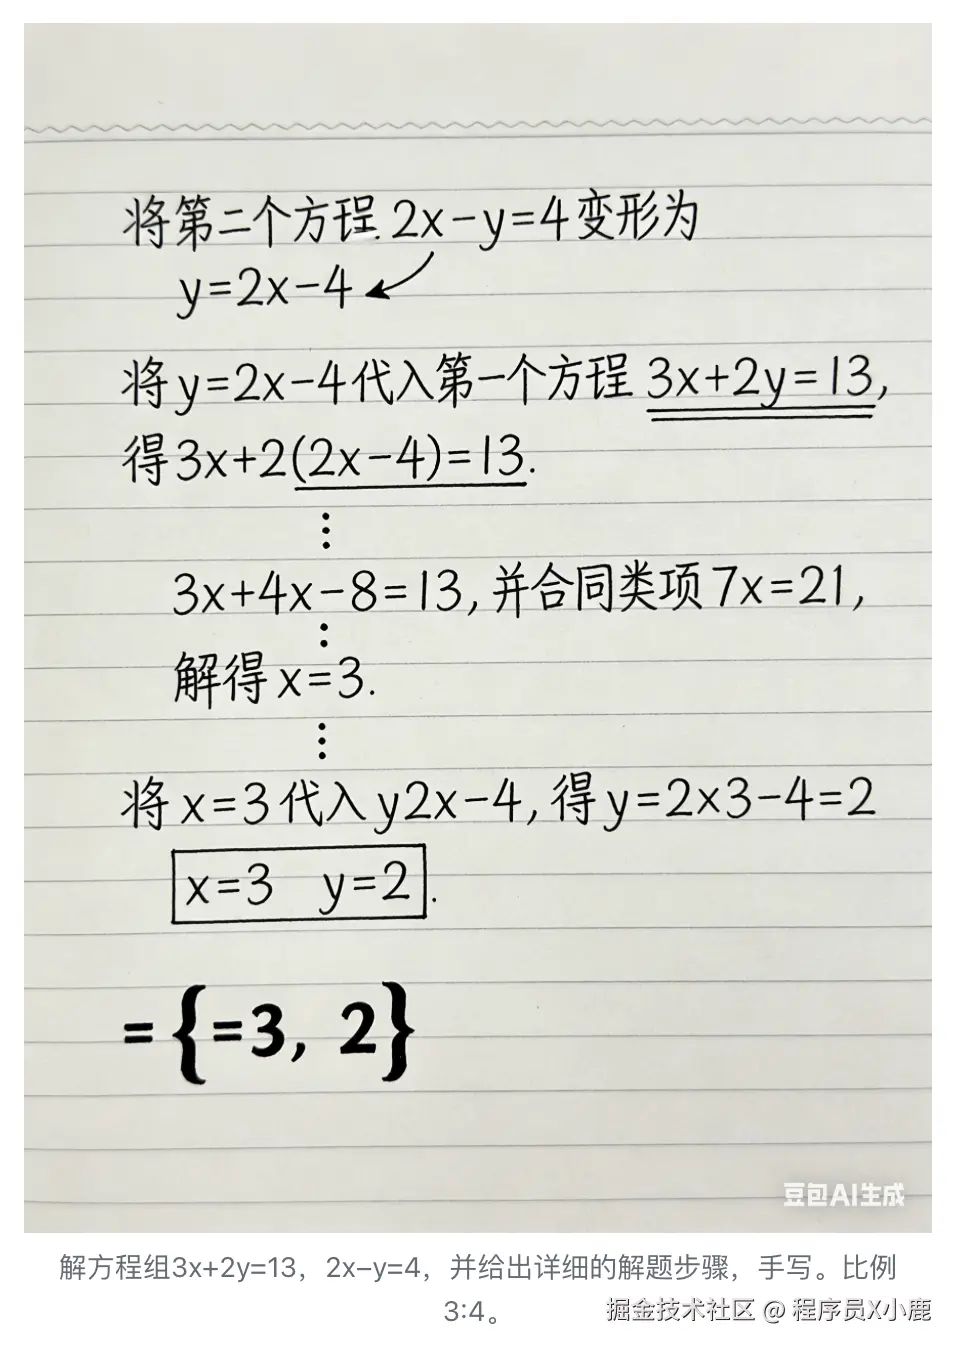 将第二个方程.2x-y=4变形为
y=2x-4
将y=2x-4代入第一个方程3x+2y=13,
得3x+2(2x-4)=13.
⋮
3x+4x-8=13,并合同类项7x=21,
⋮
解得x=3.
⋮
将x=3代入y2x-4,得y=2x3-4=2
x=3 y=2.
={=3, 2}
豆包AI生成
解方程组3x+2y=13，2x−y=4，并给出详细的解题步骤，手写。比例
3:4。
掘金技术社区 @ 程序员X小鹿